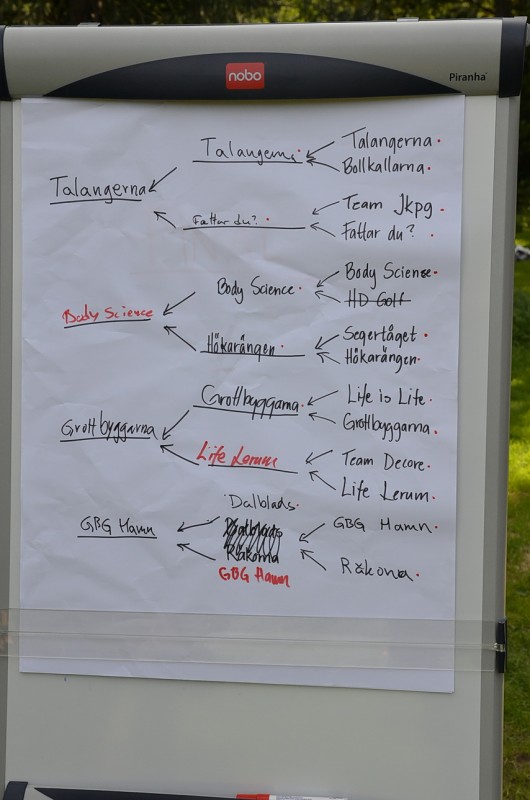 nobo
Piranha
Talangerna
Talangerna
Bollkallarna
Talangerna
Team Jkpg
Fattar du?
Fattar du?
Body Sciense
Body Science
HD Golf
Body Science
Segertåget
Hökarängen
Hökarängen
Life is Life
Grottbyggarna
Grottbyggarna
Grottbyggarna
Team Decore
Life Lerum
Life Lerum
Dalblads
GBG Hamn
Dalblads
GBG Hamn
Räkorna
Räkorna
GBG Hamn